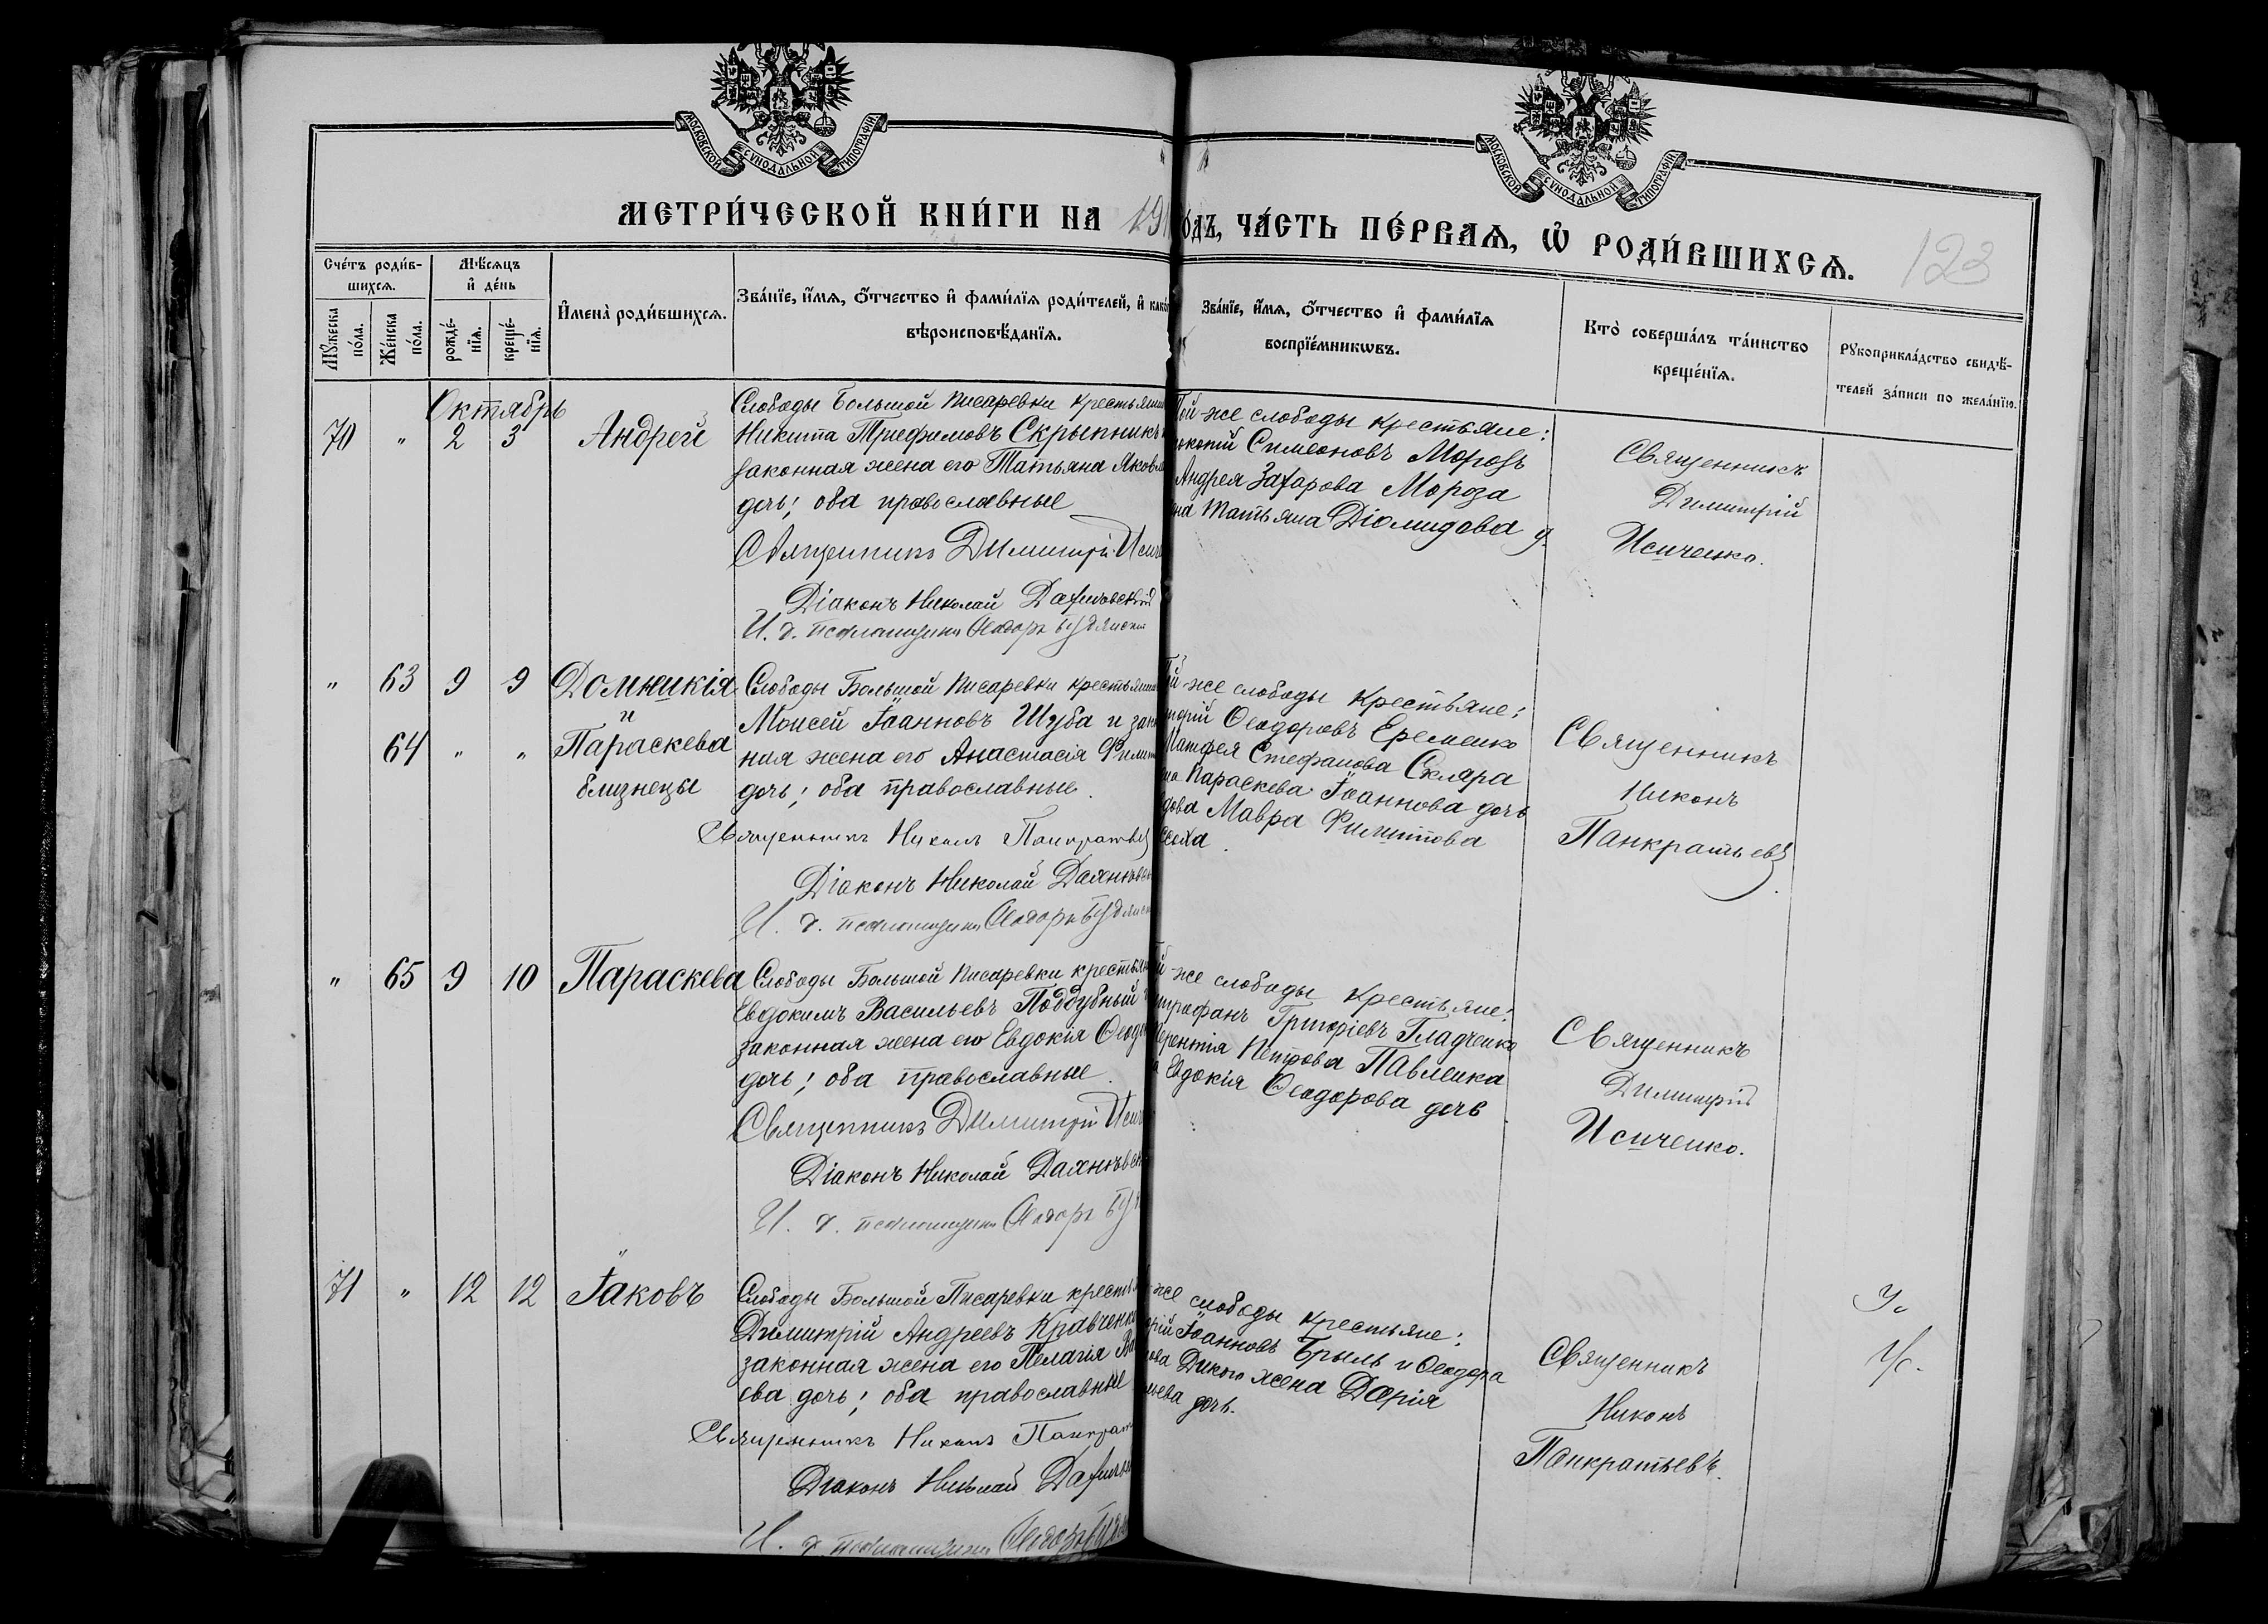 МОСКОВСКОЙ СѴНОДАЛЬНОЙ ТИПОГРАФІИ
МОСКОВСКОЙ СѴНОДАЛЬНОЙ ТИПОГРАФІИ
МЕТРИ́ЧЕСКОЙ КНИ́ГИ НА 191
ОДЪ, ЧА́СТЬ ПЕ́РВАѦ, Ѽ РОДИ́ВШИХСѦ.
123
Сче́тъ роди́в-
шихсѧ.
Мѣ́сѧцъ
и҆ де́нь
Мꙋ́жеска
по́ла.
Же́нска
по́ла.
рожде́-
нїѧ.
креще́-
нїѧ.
И҆мена̀ роди́вшихсѧ.
Зва́нїе, и҆́мѧ, ѻ҆́тчество и҆ фами́лїѧ роди́телей, и҆ како
вѣроисповѣ́данїѧ.
Зва́нїе, и҆́мѧ, ѻ҆́тчество и҆ фами́лїѧ
воспрїе́мникѡвъ.
Кто̀ соверша́лъ та́инство
креще́нїѧ.
Рꙋкоприкла́дство свидѣ́-
телей за́писи по жела́нїю.
Октябрь
70 " 2 3 Андрей
Слободы Большой Писаревки крестьянин
Никита Трифимовъ Скрыпникъ
законная жена его Татьяна Яковл
дочь; оба православные
Священникъ Димитрій Исич
Діаконъ Николай Дахновскій
И. д. псаломщика Ѳеодоръ
Той-же слободы крестьяне:
окопій Симеоновъ Морозъ
Андрея Захарова Мороза
на Татьяна Діомидова д.
Священникъ
Димитрій
Исиченко.
" 63 9 9 Домникія
и
64 " " Параскева
близнецы
Слободы Большой Писаревки крестьянин
Моисей Іоанновъ Шуба и зако
ная жена его Анастасія Филип
дочь; оба православные.
Священникъ Никонъ Панкратьев
Діаконъ Николай Дахновск
И. д. псаломщика Ѳеодоръ
ой-же слободы крестьяне:
торій Ѳеодоровъ Еременко
Матфея Стефанова Скляра
на Параскева Іоаннова дочь
дова Мавра Филиппова
Священникъ
Никонъ
Панкратьевъ.
" 65 9 10 Параскева
Слободы Большой Писаревки крестьян
Евдокимъ Васильевъ Поддубный
законная жена его Евдокія Ѳеодо
дочь; оба православные.
Священникъ Димитрій Исич
Діаконъ Николай Дахновск
И. д. псаломщика Ѳеодоръ
й-же слободы крестьяне:
итрофанъ Григоріевъ Гладченко
Терентія Петрова Павленка
а Евдокія Ѳеодорова дочь
Священникъ
Димитрій
Исиченко.
71 " 12 12 Іаковъ
Слободы Большой Писаревки кресть
Димитрій Андреевъ Кравченко
законная жена его Пелагія Ва
ева дочь; оба православные
Священникъ Никонъ Панкрат
Діаконъ Николай Дахновс
И. д. псаломщика Ѳеодоръ
-же слободы крестьяне:
рій Іоанновъ Брыль и Ѳеодора
ова Дикого жена Дарія
ьева дочь.
Священникъ
Никонъ
Панкратьевъ.